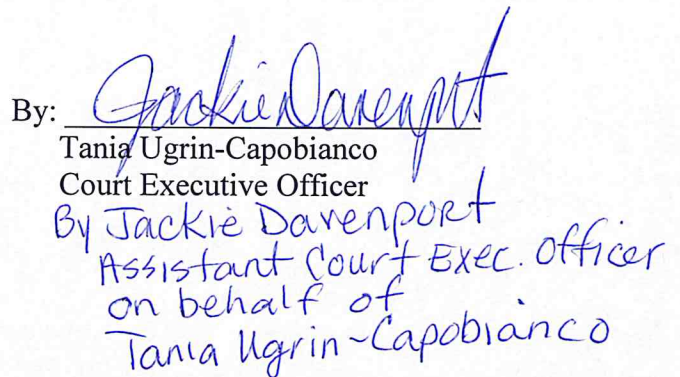 By: Jackie Davenport
Tania Ugrin-Capobianco
Court Executive Officer
By Jackie Davenport
Assistant Court Exec. Officer
on behalf of
Tania Ugrin-Capobianco